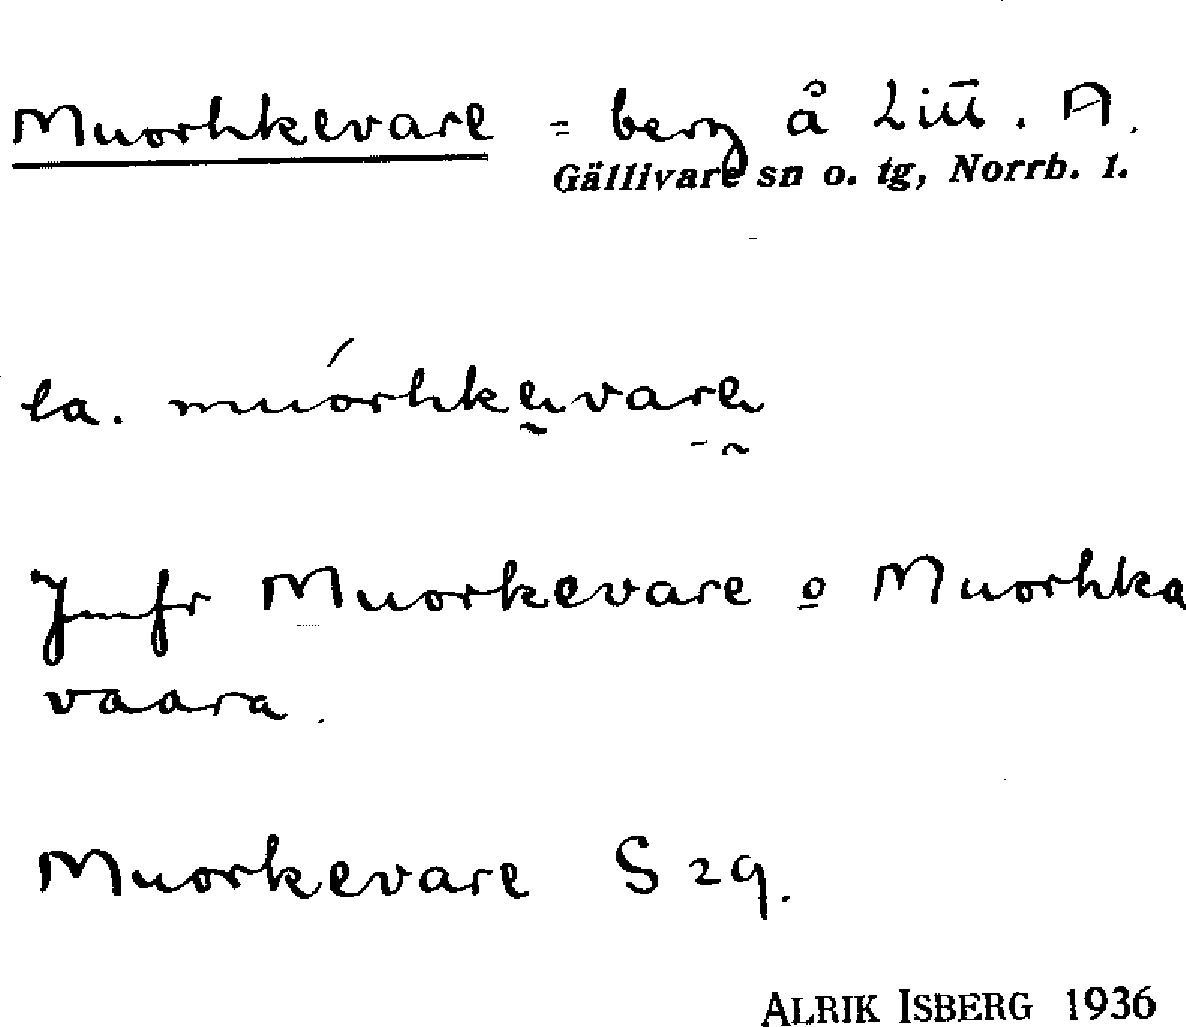 Muorhkevare = berg å Liū. A.
Gällivare sn o. tg, Norrb. l.
la. muórhkevare
Jmfr Muorkevare o Muorhka
vaara.
Muorkevare S 29.
ALRIK ISBERG 1936